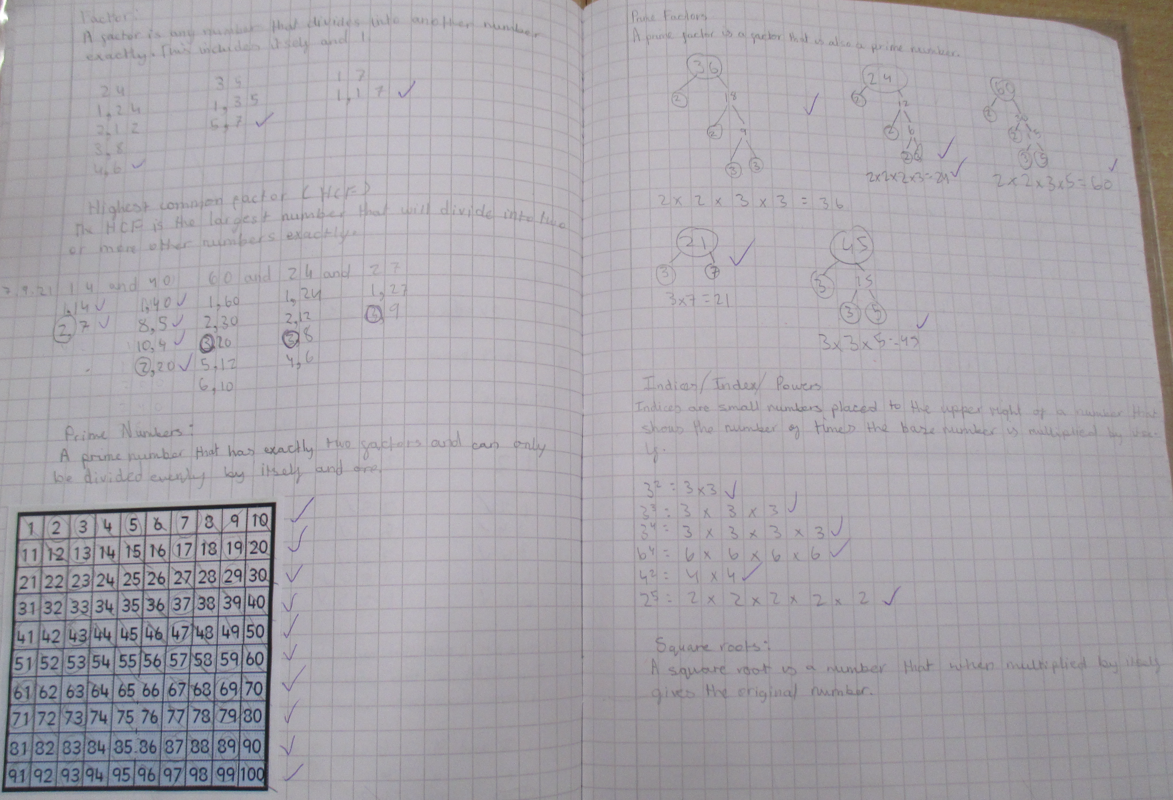 Factor:
A factor is any number that divides into another number
exactly. This includes itself and 1
24 35 17
1,24 1,35 1,17
2,12 5,7
3,8
4,6
Highest common factor (HCF)
The HCF is the largest number that will divide into two
or more other numbers exactly.
14 and 40 60 and 24 and 27
1,14 1,40 1,60 1,24 1,27
2,7 8,5 2,30 2,12 3,9
10,4 3,20 3,8
2,20 5,12 4,6
6,10
Prime Numbers:
A prime number that has exactly two factors and can only
be divided evenly by itself and one.
1 2 3 4 5 6 7 8 9 10
11 12 13 14 15 16 17 18 19 20
21 22 23 24 25 26 27 28 29 30
31 32 33 34 35 36 37 38 39 40
41 42 43 44 45 46 47 48 49 50
51 52 53 54 55 56 57 58 59 60
61 62 63 64 65 66 67 68 69 70
71 72 73 74 75 76 77 78 79 80
81 82 83 84 85 86 87 88 89 90
91 92 93 94 95 96 97 98 99 100
Prime Factors
A prime factor is a factor that is also a prime number.
36 24 60
2 18 2 12 2
2 9 2 6 2 15
3 3 2 3 5
2x2x2x3=24 2x2x3x5=60
2 x 2 x 3 x 3 = 36
21 45
3 7 3 15
3 5
3x7=21
3x3x5=45
Indices/Index/Powers
Indices are small numbers placed to the upper right of a number that
shows the number of times the base number is multiplied by
3² = 3x3
3³ = 3 x 3 x 3
3⁴ = 3 x 3 x 3 x 3
6⁴ = 6 x 6 x 6 x 6
4² = 4 x 4
2⁵ = 2 x 2 x 2 x 2 x 2
Square roots:
A square root is a number that when multiplied by itself
gives the original number.